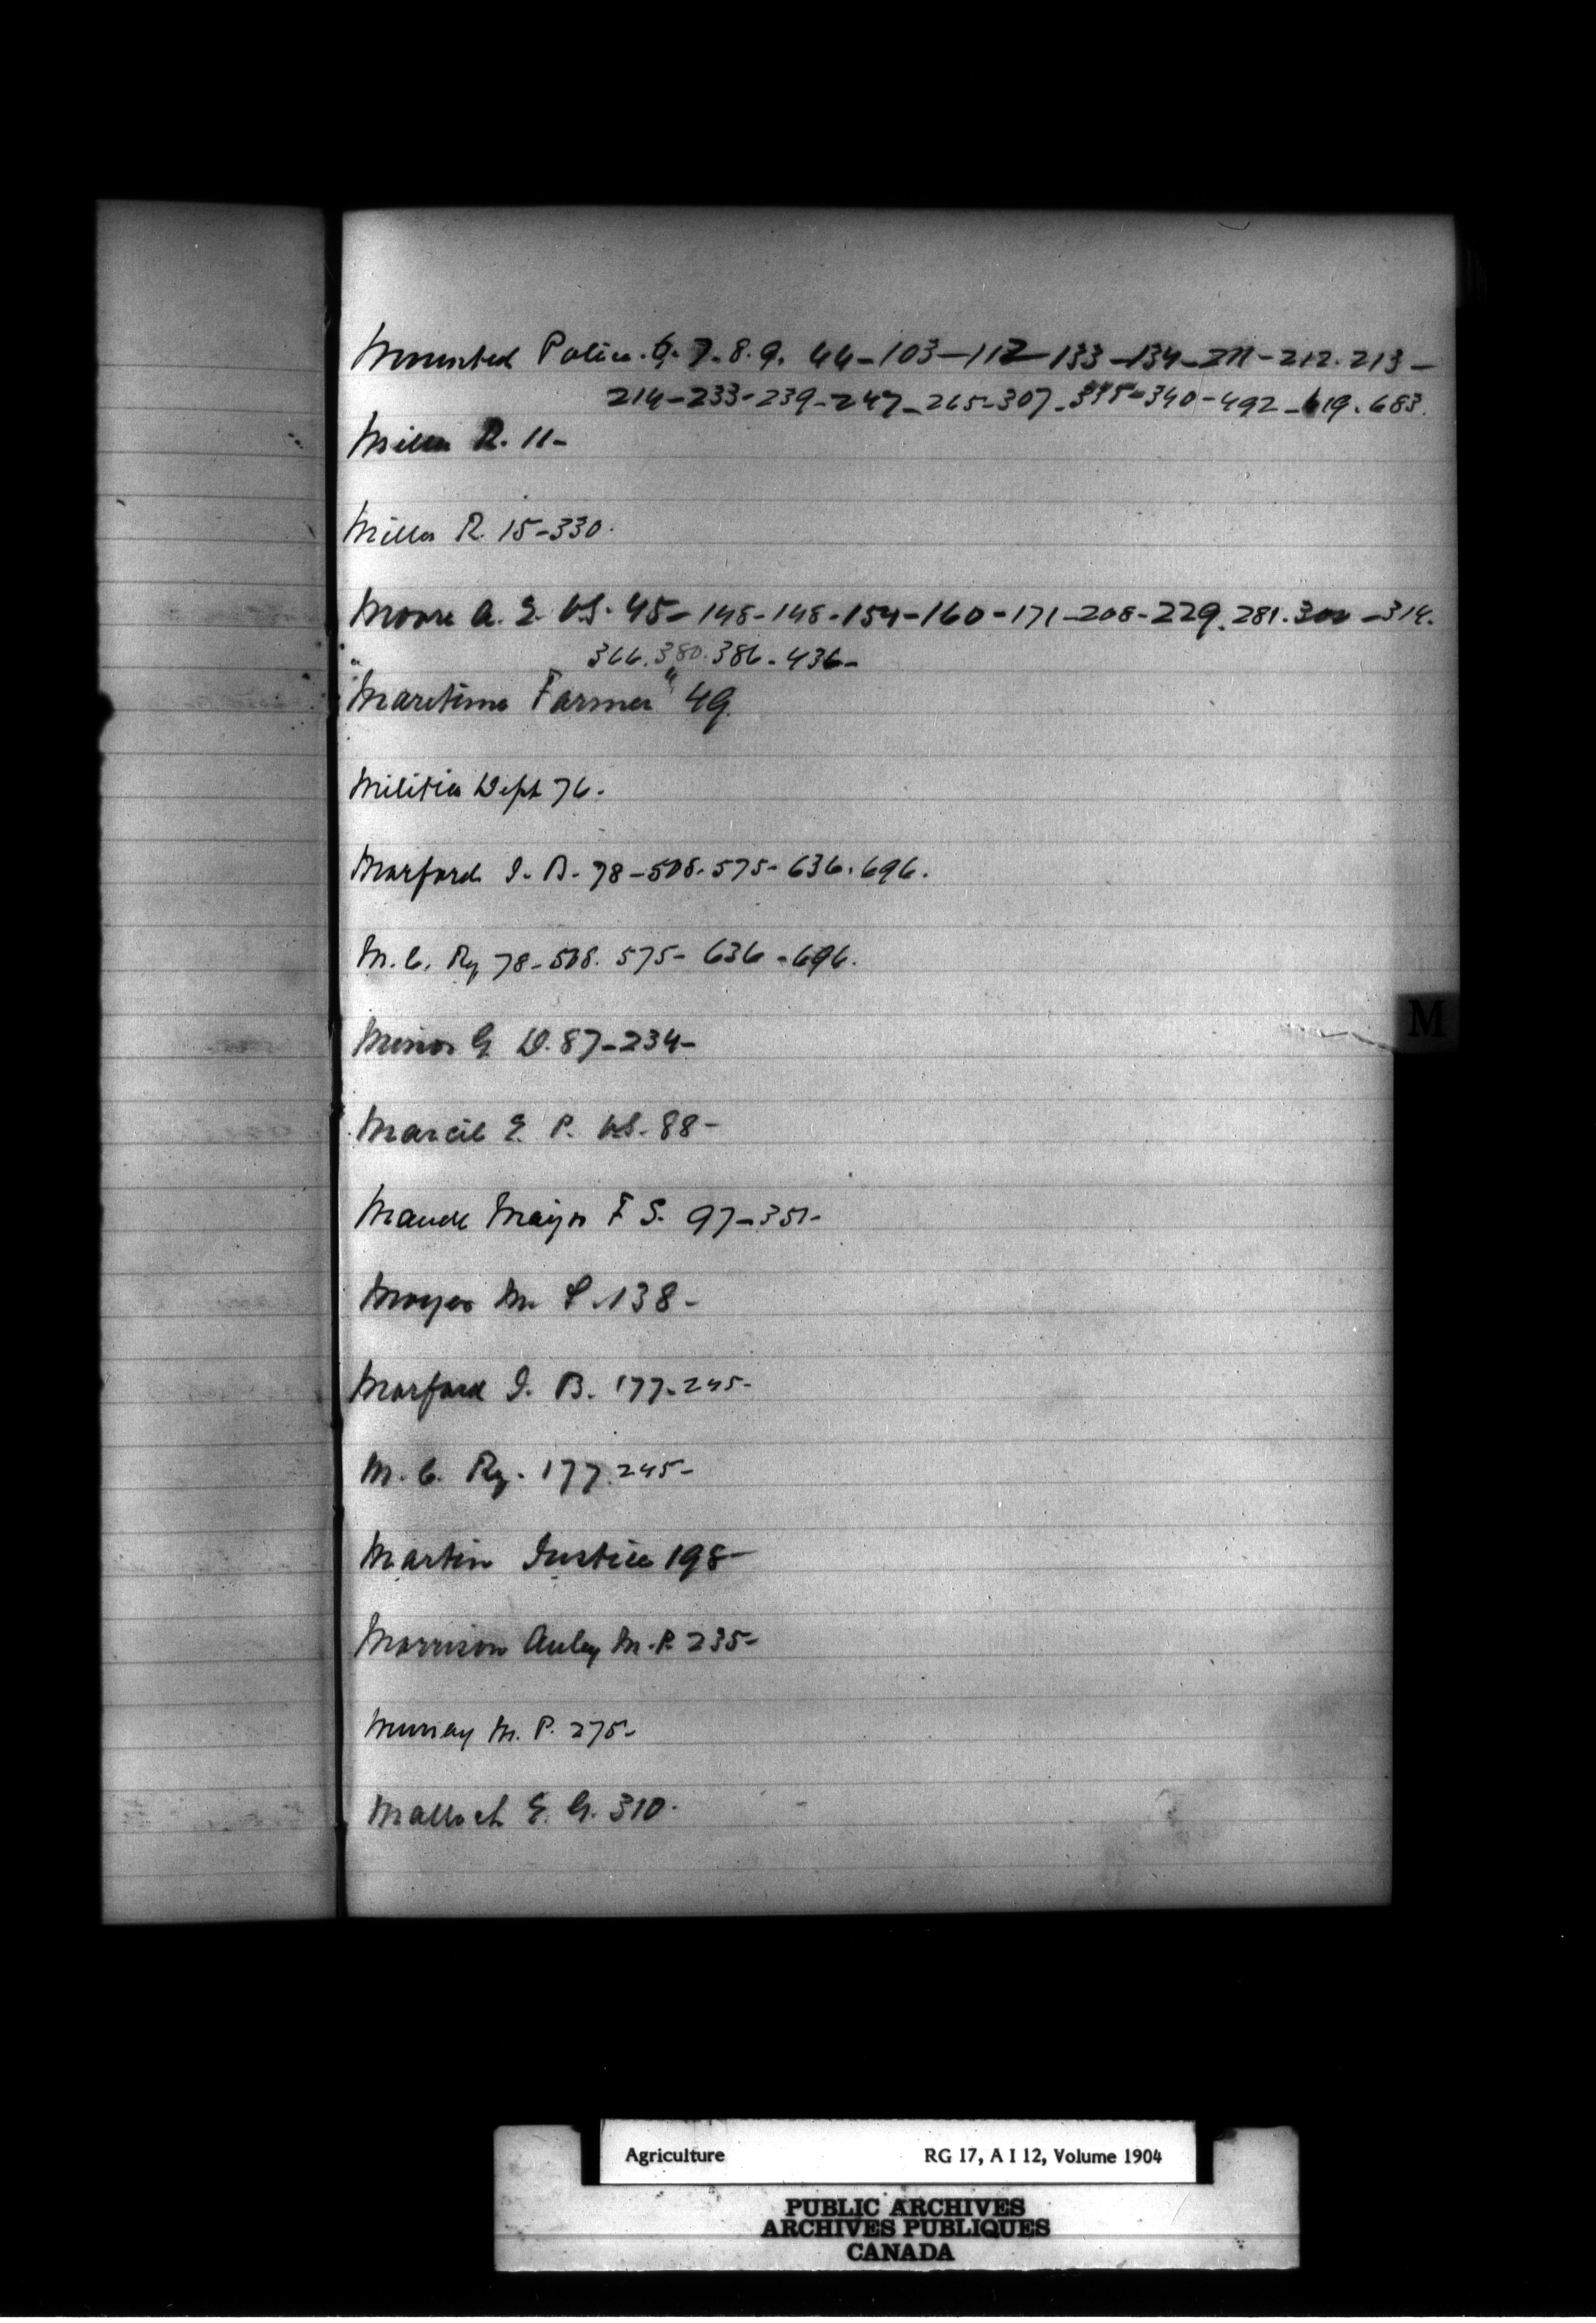 Mounted Police. 6. 7. 8. 9. 44-103-112-133-134-211-212.213-
214-233-239-247-265-307-335-340-492-619.683.
Miller R. 11-
Miller R. 15-330.
Moore A. E. VS. 45-148-148-154-160-171-208-229.281.300-314.
366.380.386-436-
"Maritime Farmer" 49.
Militia Dept 76.
Morford I. B. 78-508.575-636.696.
M. C. Ry 78-508.575-636-696.
Minor G D. 87-234-
Marcil E. P. VS. 88-
Maude Major F S. 97-351-
Moyer M. S. 138-
Morford I. B. 177-245-
M. C. Ry. 177.245-
Martin Justice 198-
Morrison Auley M.P. 235-
Murray M. P. 275-
Malloch E. G. 310.
M
Agriculture RG 17, A I 12, Volume 1904
PUBLIC ARCHIVES
ARCHIVES PUBLIQUES
CANADA